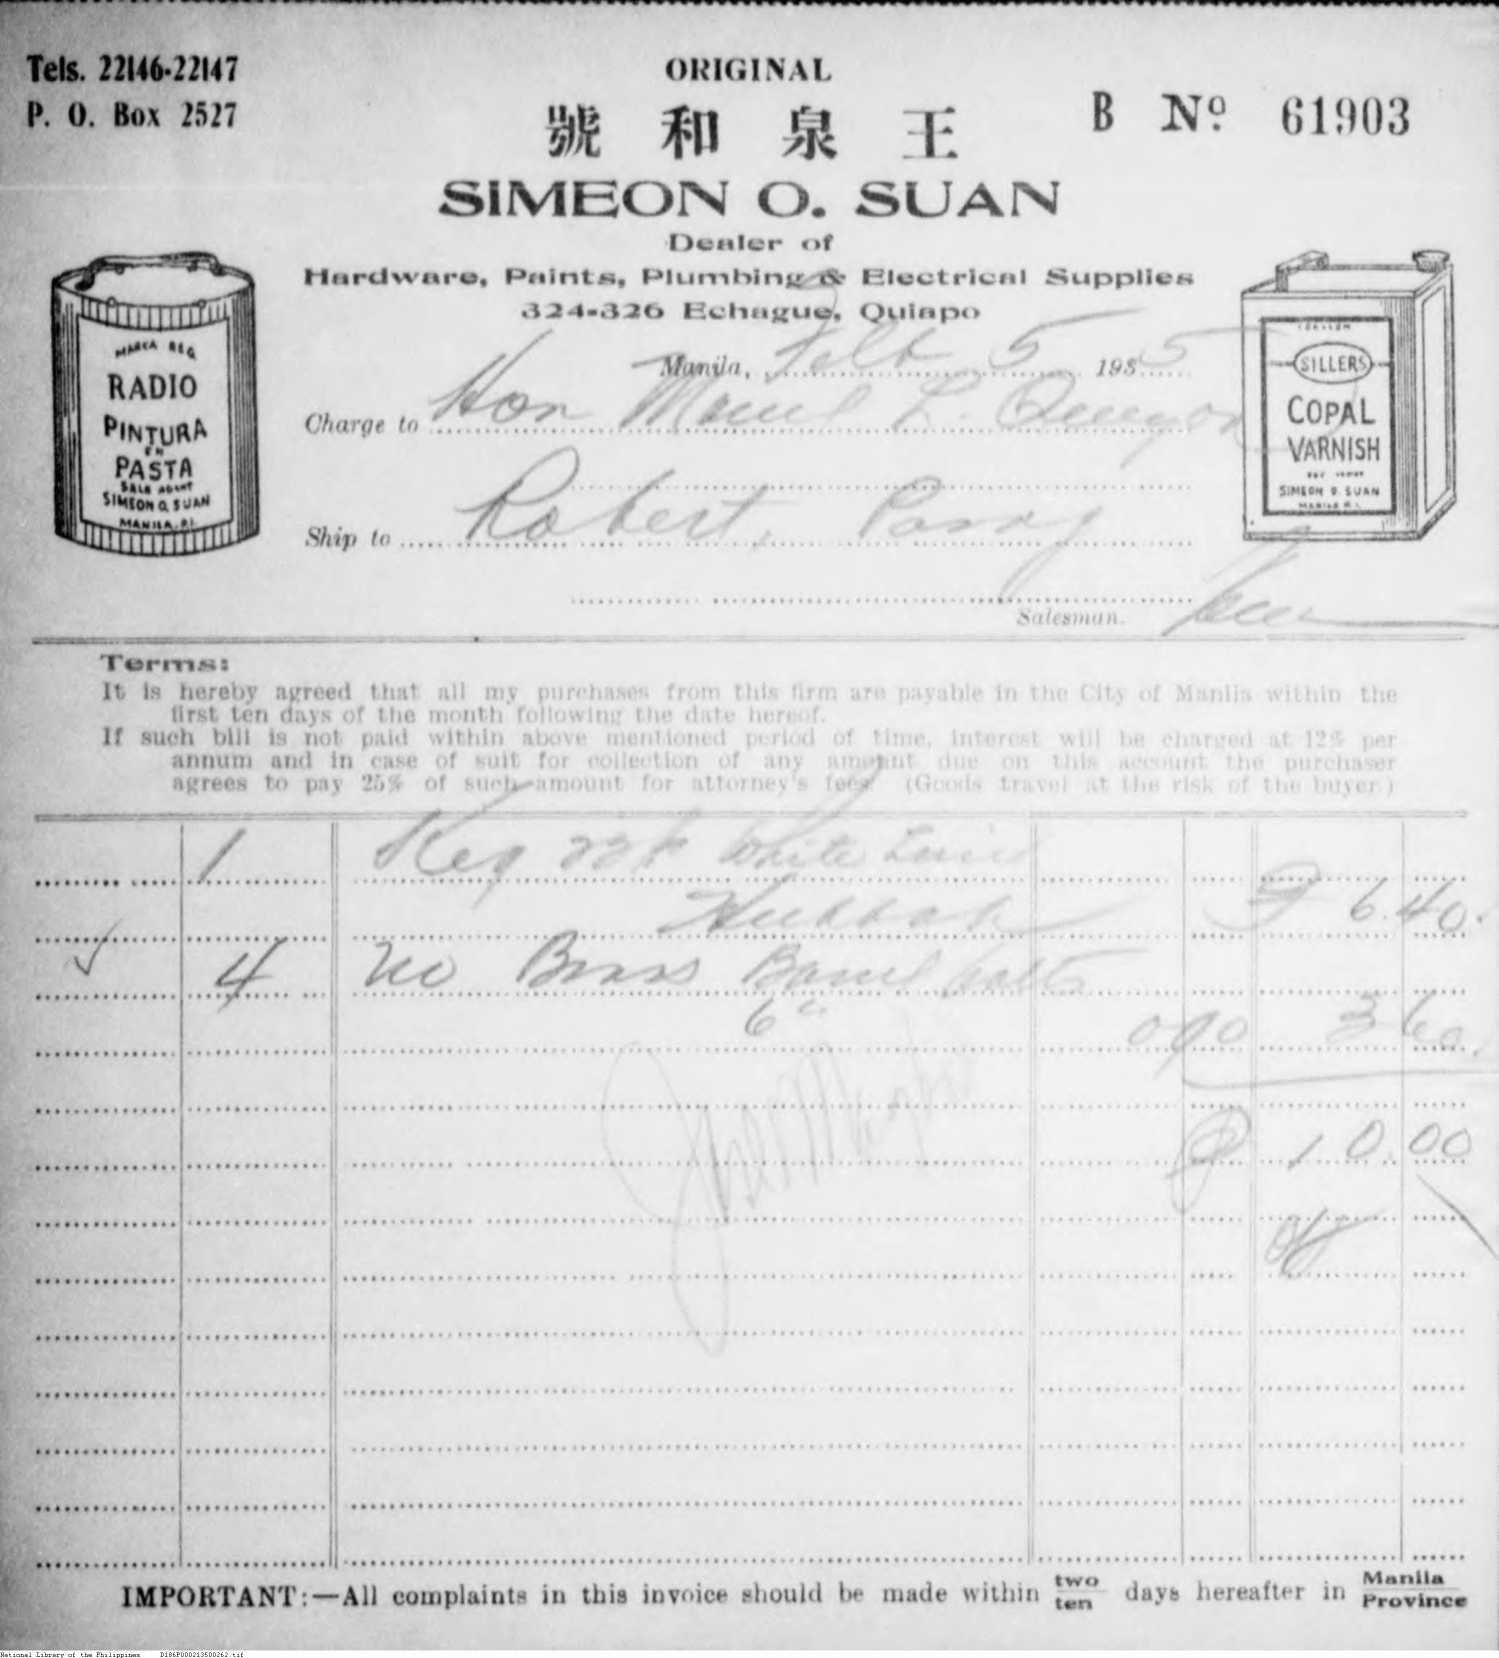 Tels. 22146-22147
P. O. Box 2527
ORIGINAL
B Nº 61903
號和泉王
SIMEON O. SUAN
Dealer of
Hardware, Paints, Plumbing & Electrical Supplies
324-326 Echague, Quiapo
MARCA REG
RADIO
PINTURA
EN
PASTA
SALE AGENT
SIMEON O. SUAN
MANILA, P.I.
SILLERS
COPAL
VARNISH
SIMEON O. SUAN
MANILA P.I.
Manila, Feb 5 1935
Charge to Hon Manuel L. Quezon
Ship to Robert, Pasay
Salesman.
Terms:
It is hereby agreed that all my purchases from this firm are payable in the City of Manila within the
first ten days of the month following the date hereof.
If such bill is not paid within above mentioned period of time, interest will be charged at 12% per
annum and in case of suit for collection of any amount due on this account the purchaser
agrees to pay 25% of such amount for attorney's fees. (Goods travel at the risk of the buyer.)
1 Keg White Lead
₱ 6.40.
4 no Brass Barrel bolts
6" 090 3 60.
₱ 10.00
IMPORTANT:—All complaints in this invoice should be made within two ten days hereafter in Manila Province
National Library of the Philippines D186P000213500262.tif